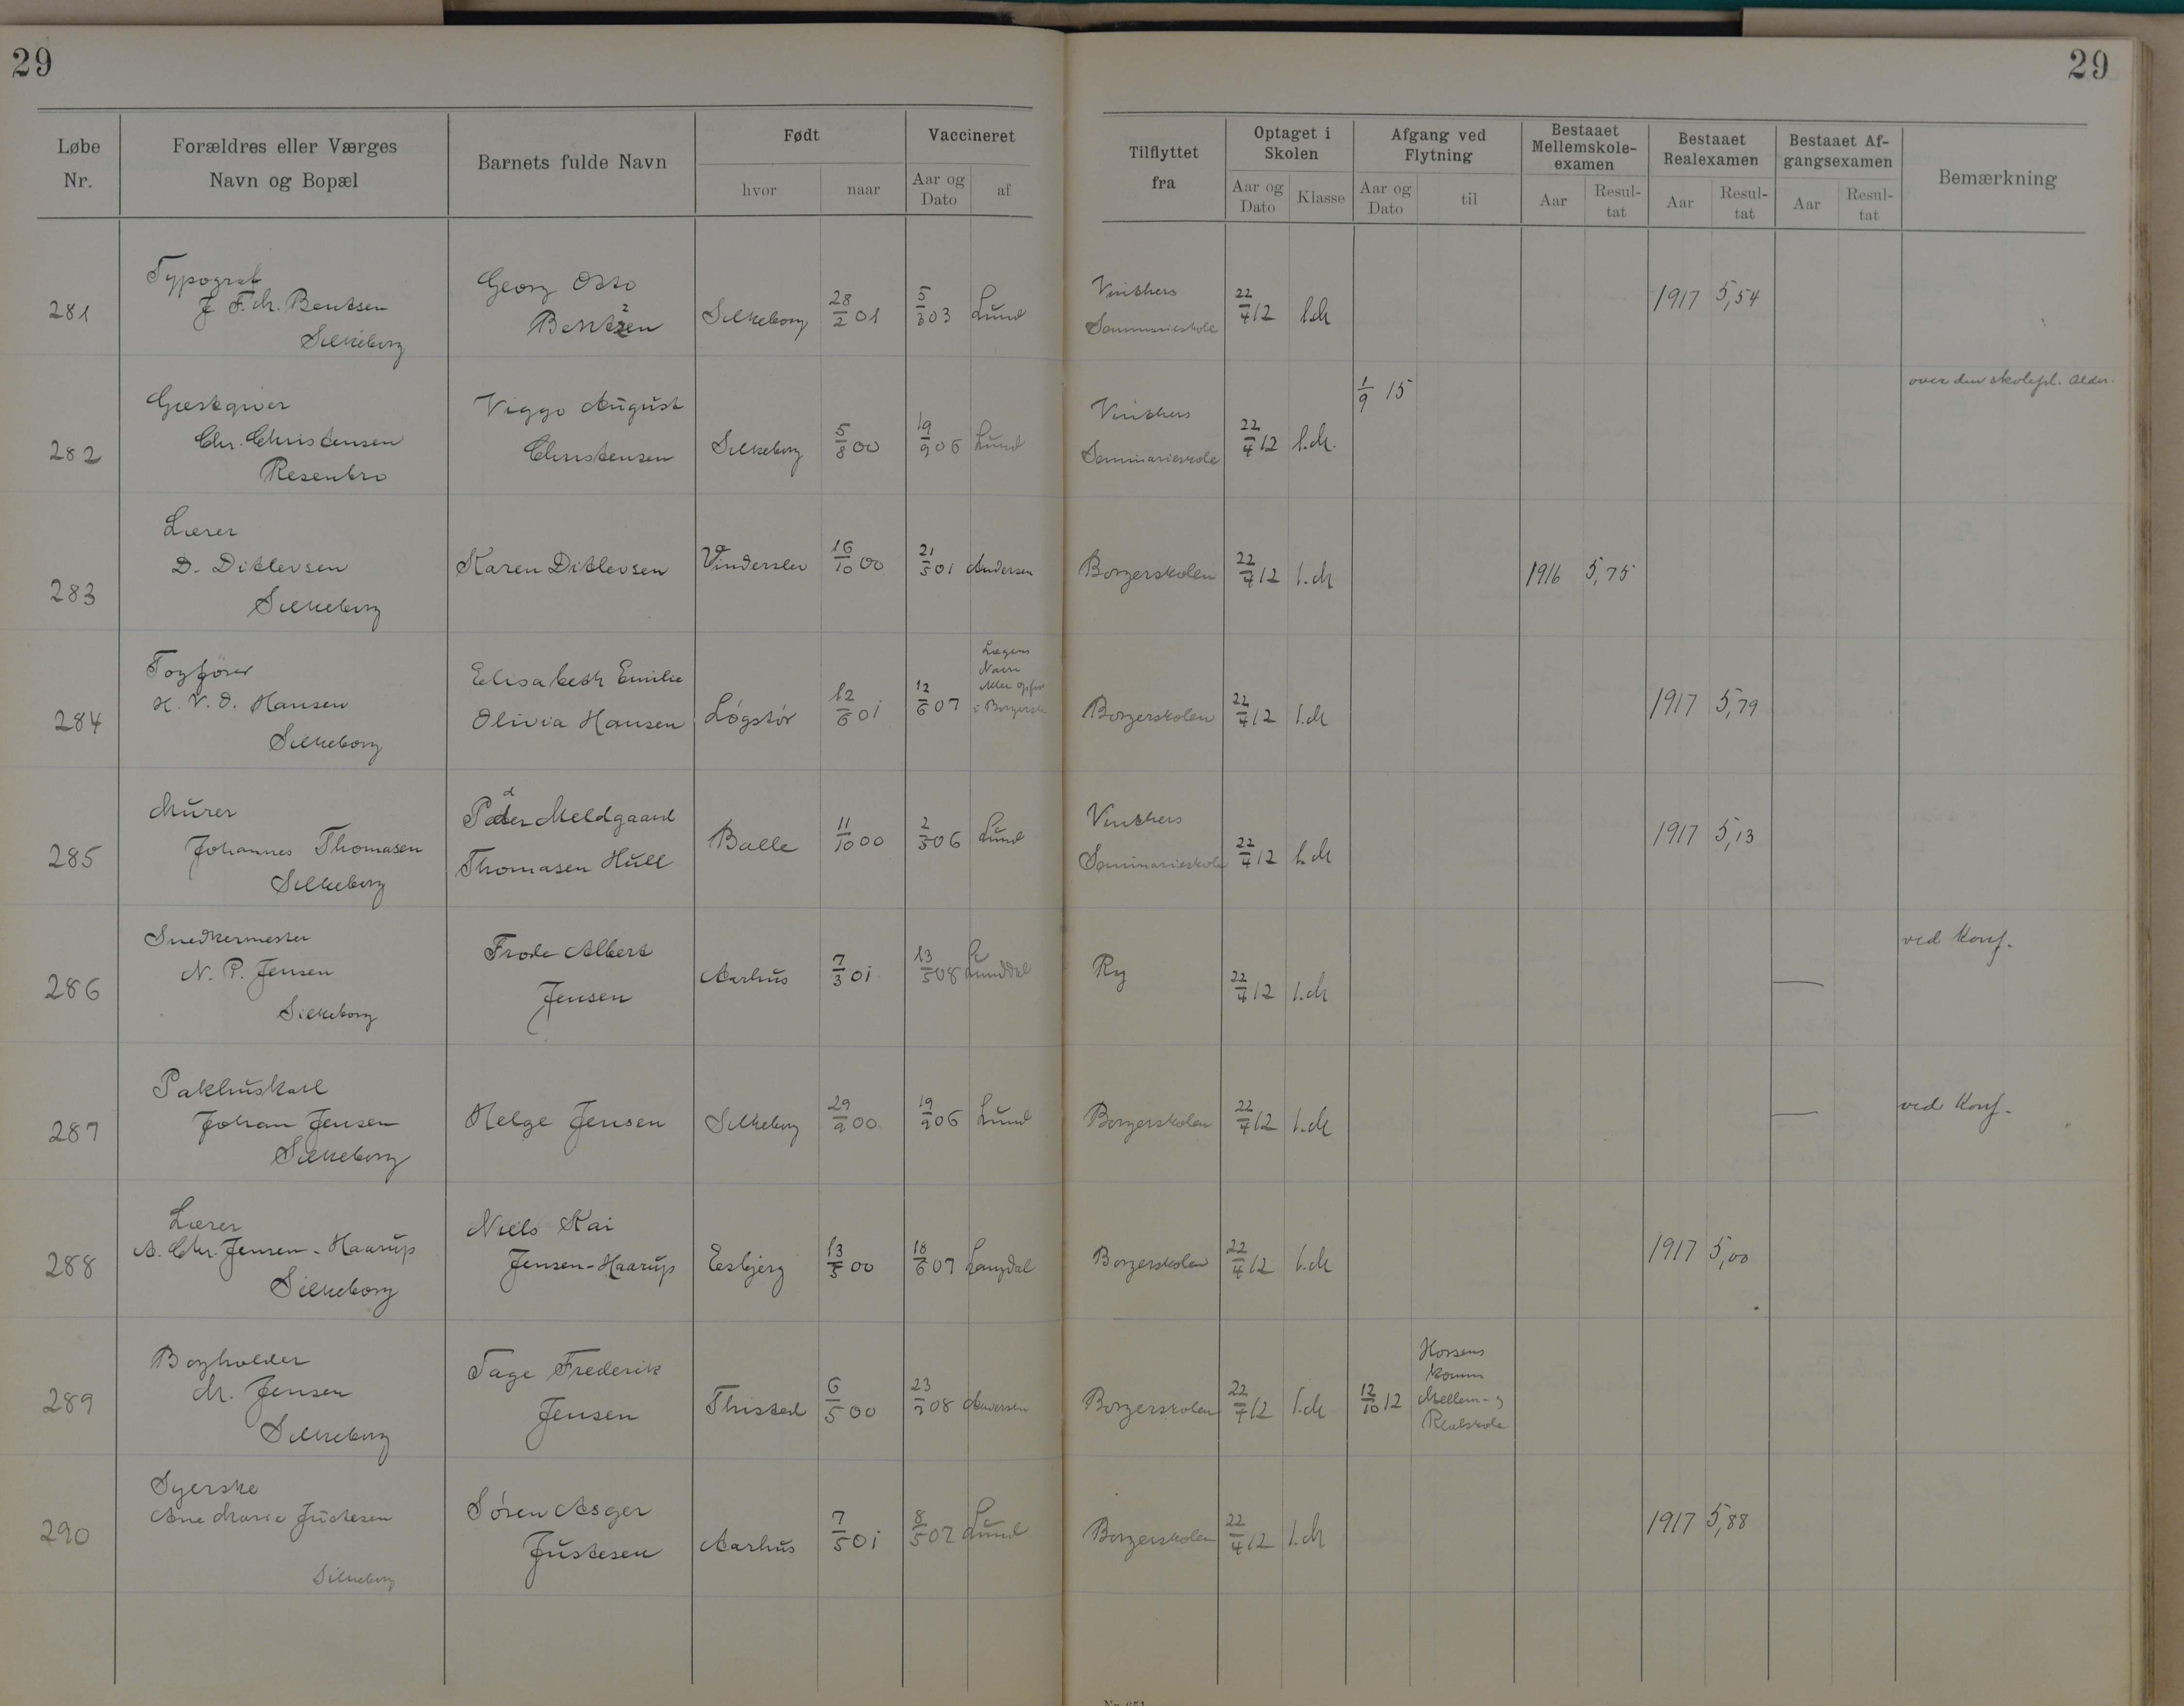 29
29
Løbe Nr.
Forældres eller Værges Navn og Bopæl
Barnets fulde Navn
Født
hvor
naar
Vaccineret
Aar og Dato
af
Tilflyttet fra
Optaget i Skolen
Aar og Dato
Klasse
Afgang ved Flytning
Aar og Dato
til
Bestaaet Mellemskole-examen
Aar
Resul-tat
Bestaaet Realexamen
Aar
Resul-tat
Bestaaet Af-gangsexamen
Aar
Resul-tat
Bemærkning
281
Typograf
J F. M. Bentsen
Silkeborg
Georg Otto
Bentzen
Silkeborg
28/2 01
5/3 03
Lund
Vinthers
Seminarieskole
22/4 12
1.M
1917
5,54
282
Gæstgiver
Chr. Christensen
Resenbro
Viggo August
Christensen
Silkeborg
5/8 00
19/9 06
Lund
Vinthers
Seminarieskole
22/4 12
1.M.
1/9 15
over den skolepl. Alder.
283
Lærer
D. Ditlevsen
Silkeborg
Karen Ditlevsen
Vinderslev
16/10 00
21/5 01
Andersen
Borgerskolen
22/4 12
1.M
1916
5,75
284
Togfører
H. V. O. Hansen
Silkeborg
Elisabeth Emilie
Olivia Hansen
Løgstør
12/6 01
12/6 07
Lægens
Navn
i Borgersk
Borgerskolen
22/4 12
1.M
1917
5,79
285
Murer
Johannes Thomasen
Silkeborg
Peder Meldgaard
Thomasen Hull
Balle
11/10 00
2/5 06
Lund
Vinthers
Seminarieskole
22/4 12
1.M
1917
5,13
286
Snedkermester
N. P. Jensen
Silkeborg
Frode Albert
Jensen
Aarhus
7/3 01
13/5 08
Lunddal
Ry
22/4 12
1.M
—
ved Konf.
287
Pakhuskarl
Johan Jensen
Silkeborg
Helge Jensen
Silkeborg
29/9 00
19/9 06
Lund
Borgerskolen
22/4 12
1.M
—
ved Konf.
288
Lærer
A. Chr. Jensen-Haarup
Silkeborg
Niels Kai
Jensen-Haarup
Esbjerg
13/5 00
18/6 07
Langdal
Borgerskolen
22/4 12
1.M
1917
5,00
289
Bogholder
M. Jensen
Silkeborg
Tage Frederik
Jensen
Thisted
6/5 00
Andersen
Borgerskolen
22/4 12
1.M
12/10 12
Horsens
Komm
Mellem- og
Realskole
290
Syerske
Ane Marie Justesen
Silkeborg
Søren Asger
Justesen
Aarhus
7/5 01
8/5 02
Lund
Borgerskolen
22/4 12
1.M
1917
5,88